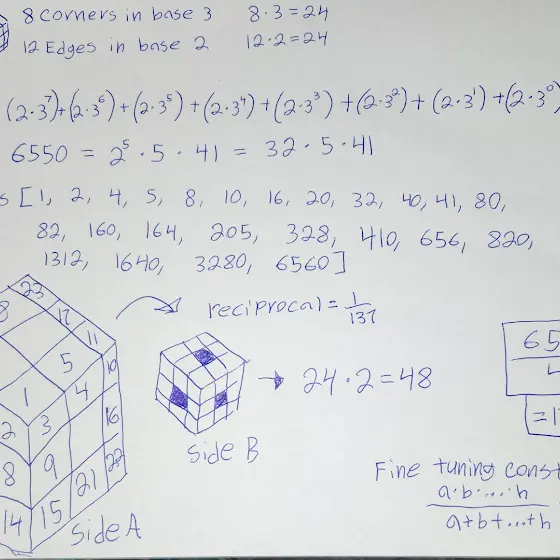 8 corners in base 3 8·3=24
12 Edges in base 2 12·2=24
(2·3⁷)+(2·3⁶)+(2·3⁵)+(2·3⁴)+(2·3³)+(2·3²)+(2·3¹)+(2·3⁰)
6550 = 2⁵·5·41 = 32·5·41
s [1, 2, 4, 5, 8, 10, 16, 20, 32, 40, 41, 80,
82, 160, 164, 205, 328, 410, 656, 820,
1312, 1640, 3280, 6560]
23
8 17
11
reciprocal = 1/137
5 10
1 4
2 3 16
8 9 21 22
14 15
side A
24·2=48
side B
65
4
=1
Fine tuning const
a·b·...·h
a+b+...+h